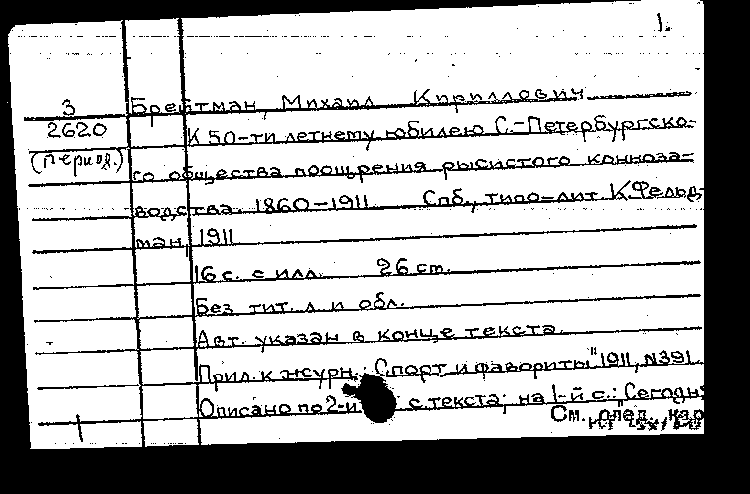 1.
3
2620
(период.)
Брейтман, Михаил Кириллович
К 50-ти летнему юбилею С.-Петербургско-
го общества поощрения рысистого конноза-
водства. 1860-1911 Спб., типо-лит. К.Фельд-
ман, 1911
16 с. с илл. 26 ст.
Без тит. л. и обл.
Авт. указан в конце текста.
Прил. к журн.: "Спорт и фавориты" 1911, N391.
Описано по 2-й с. текста; на 1-й с.: "Сегодня
См. след. кар